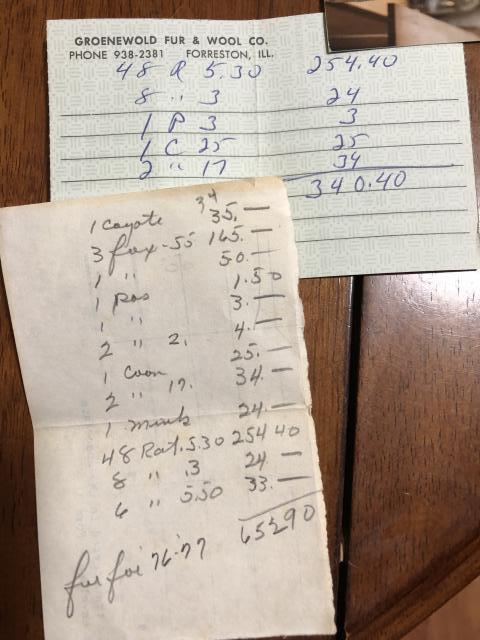 GROENEWOLD FUR & WOOL CO.
PHONE 938-2381 FORRESTON, ILL.
48 R 5.30 254.40
8 " 3 24
1 P 3 3
1 C 25 25
2 " 17 34
340.40
34
1 Coyote 35.—
3 fox - 55 165.—
1 " 50.—
1 pos 1.50
1 " 3.—
2 " 2. 4.—
1 Coon 25.—
2 " 17. 34.—
1 mink 24.—
48 Rat. 5.30 254 40
8 " .3 24 —
6 " 5.50 33.—
652 90
fur for '76-'77